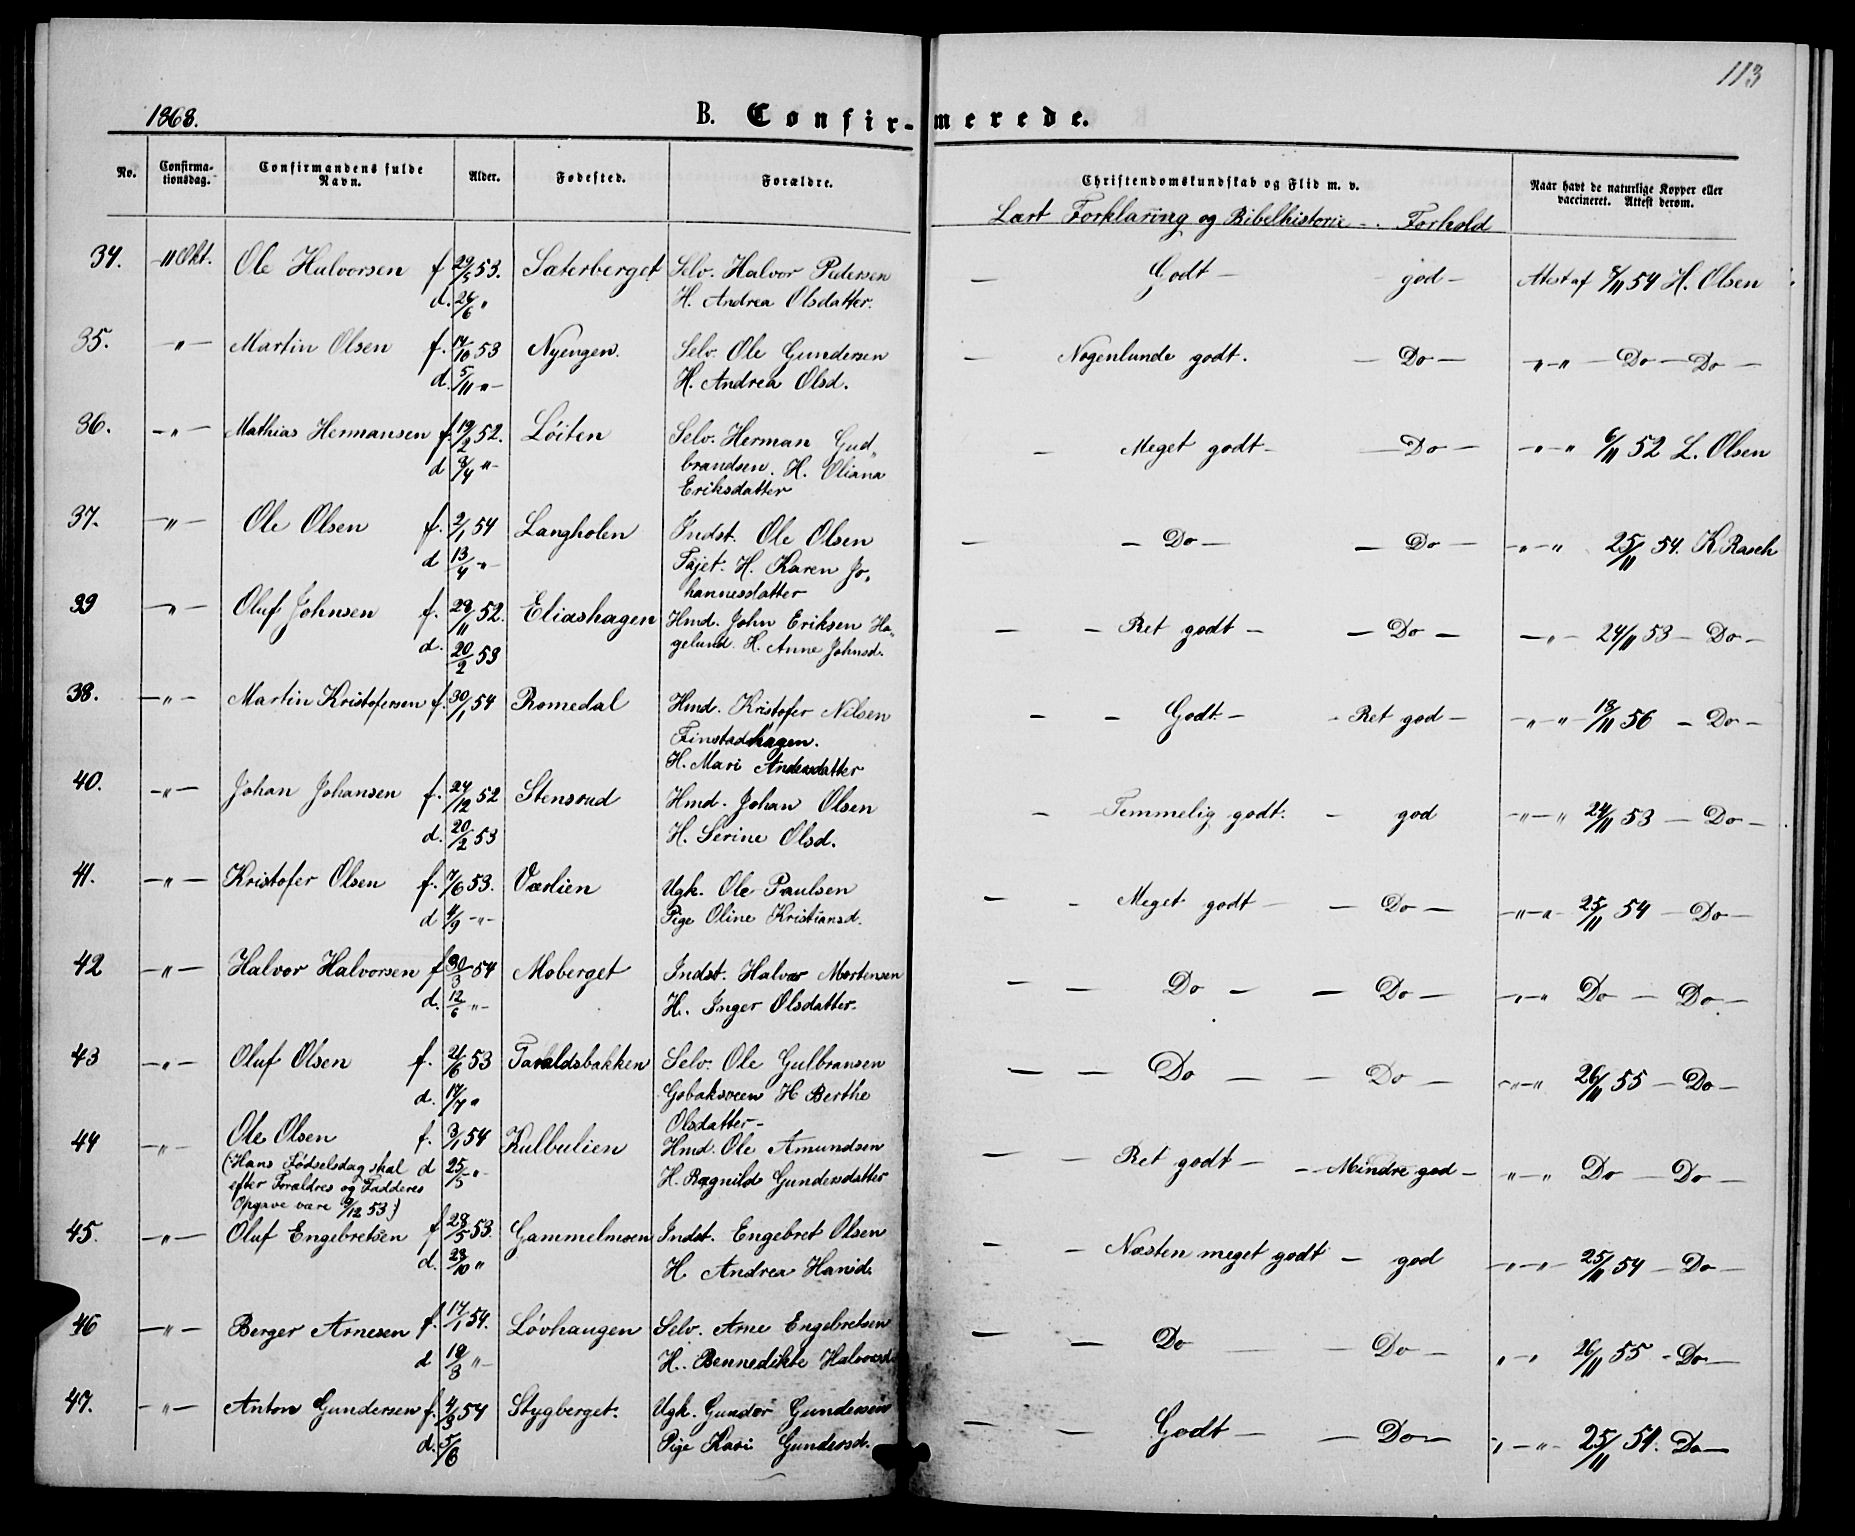 113
1868.
B. Confirmerede.
No.
Confirmationsdag.
Confirmandens fulde Navn.
Alder.
Fødested.
Forældre.
Christendomskundskab og Flid m. v.
Naar havt de naturlige Kopper eller vaccineret. Attest derom.
Læst Forklaring og Bibelhistorie - . Forhold
34. -"Okt. Ole Halvorsen f 29/5 53. Sæterberget Selv. Halvor Pedersen — Godt — god — Attest af 8/11 54 H. Olsen
d. 26/6 " H. Andrea Olsdatter.
35. —"— Martin Olsen f. 17/10 53 Nyengen. Selv. Ole Gundersen — Nogenlunde godt. — Do — "—"— Do — Do —
d. 5/11 "— H. Andrea Olsd.
36. —"— Mathias Hermansen f. 19/2 52. Löiten Selv. Herman Gud„ — Meget godt — — Do — —"—" 6/11 52 L. Olsen
d 3/4 "— brandsen. H. Oliana
Eriksdatter
37. —"— Ole Olsen f. 2/1 54 Langholen Indst. Ole Olsen — — Do — — Do — —"—" 25/11 54. K. Rasch
d 13/4 "— Tajet. H. Karen Jo„
hannesdatter
39 —"— Oluf Johnsen f. 28/11 52. Eliashagen Hmd. John Eriksen Ha„ — — Ret godt — — Do — —"— 24/11 53 — Do —
d. 20/2 53 gelund. H. Anne Johnsd.
38. —"— Martin Kristofersen f. 30/1 54 Romedal Hmd. Kristofer Nilsen — — Godt — - Ret god — —"—"— 18/11 56 — Do —
Finstadhagen.
H. Mari Andersdatter
40. —"— Johan Johansen f. 24/12 52 Stensrud Hmd. Johan Olsen — Temmelig godt. — god —"—" 24/11 53 — Do —
d. 20/2 53 H. Serine Olsd.
41. —"— Kristofer Olsen f. 7/6 53. Værlien Ugk. Ole Paulsen — - Meget godt — — Do — —"—"— 25/11 54 — Do —
d 4/9 —"— Pige Oline Kristiansd.
42 —"— Halvor Halvorsen f 30/3 54 Moberget Indst. Halvor Mortensen — — Do — — Do — —"—" Do — Do —
d. 12/6 "— H. Inger Olsdatter.
43 —"— Oluf Olsen f. 21/6 53 Taraldsbakken Selv. Ole Gulbransen — — Do — — Do — "—" 26/11 55 — Do —
d. 17/7 " Gobaksveen H Berthe
Olsdatter —
44 —"— Ole Olsen f. 3/1 54 Kulbulien Hmd. Ole Amundsen — — Ret godt — — Mindre god — "—" Do — Do —
(Hans Fødselsdag skal d 25/5 "— H. Ragnild Gundersdatter
efter Forældres og Fadderes
Opgave være 9/12 53.)
45. —"— Oluf Engebretsen f 28/5 53. Gammelmoen Indst. Engebret Olsen — — Næsten meget godt — god —"—"— 25/11 54 — Do —
d. 23/10 " H. Andrea Hansd.
46 —"— Berger Arnesen f. 17/1 54. Lövhaugen Selv. Arne Engebretsen — — Do — — Do — "—" 26/11 55 - Do —
d 19/3 "— H. Bennedikte Halvorsd.
47. —"— Anton Gundersen f. 4/3 54 Stygberget. Ugk. Gunder Gundersen — — Godt — — Do — "—"— 25/11 54. Do —
d. 5/6 Pige Kari Gundersd.